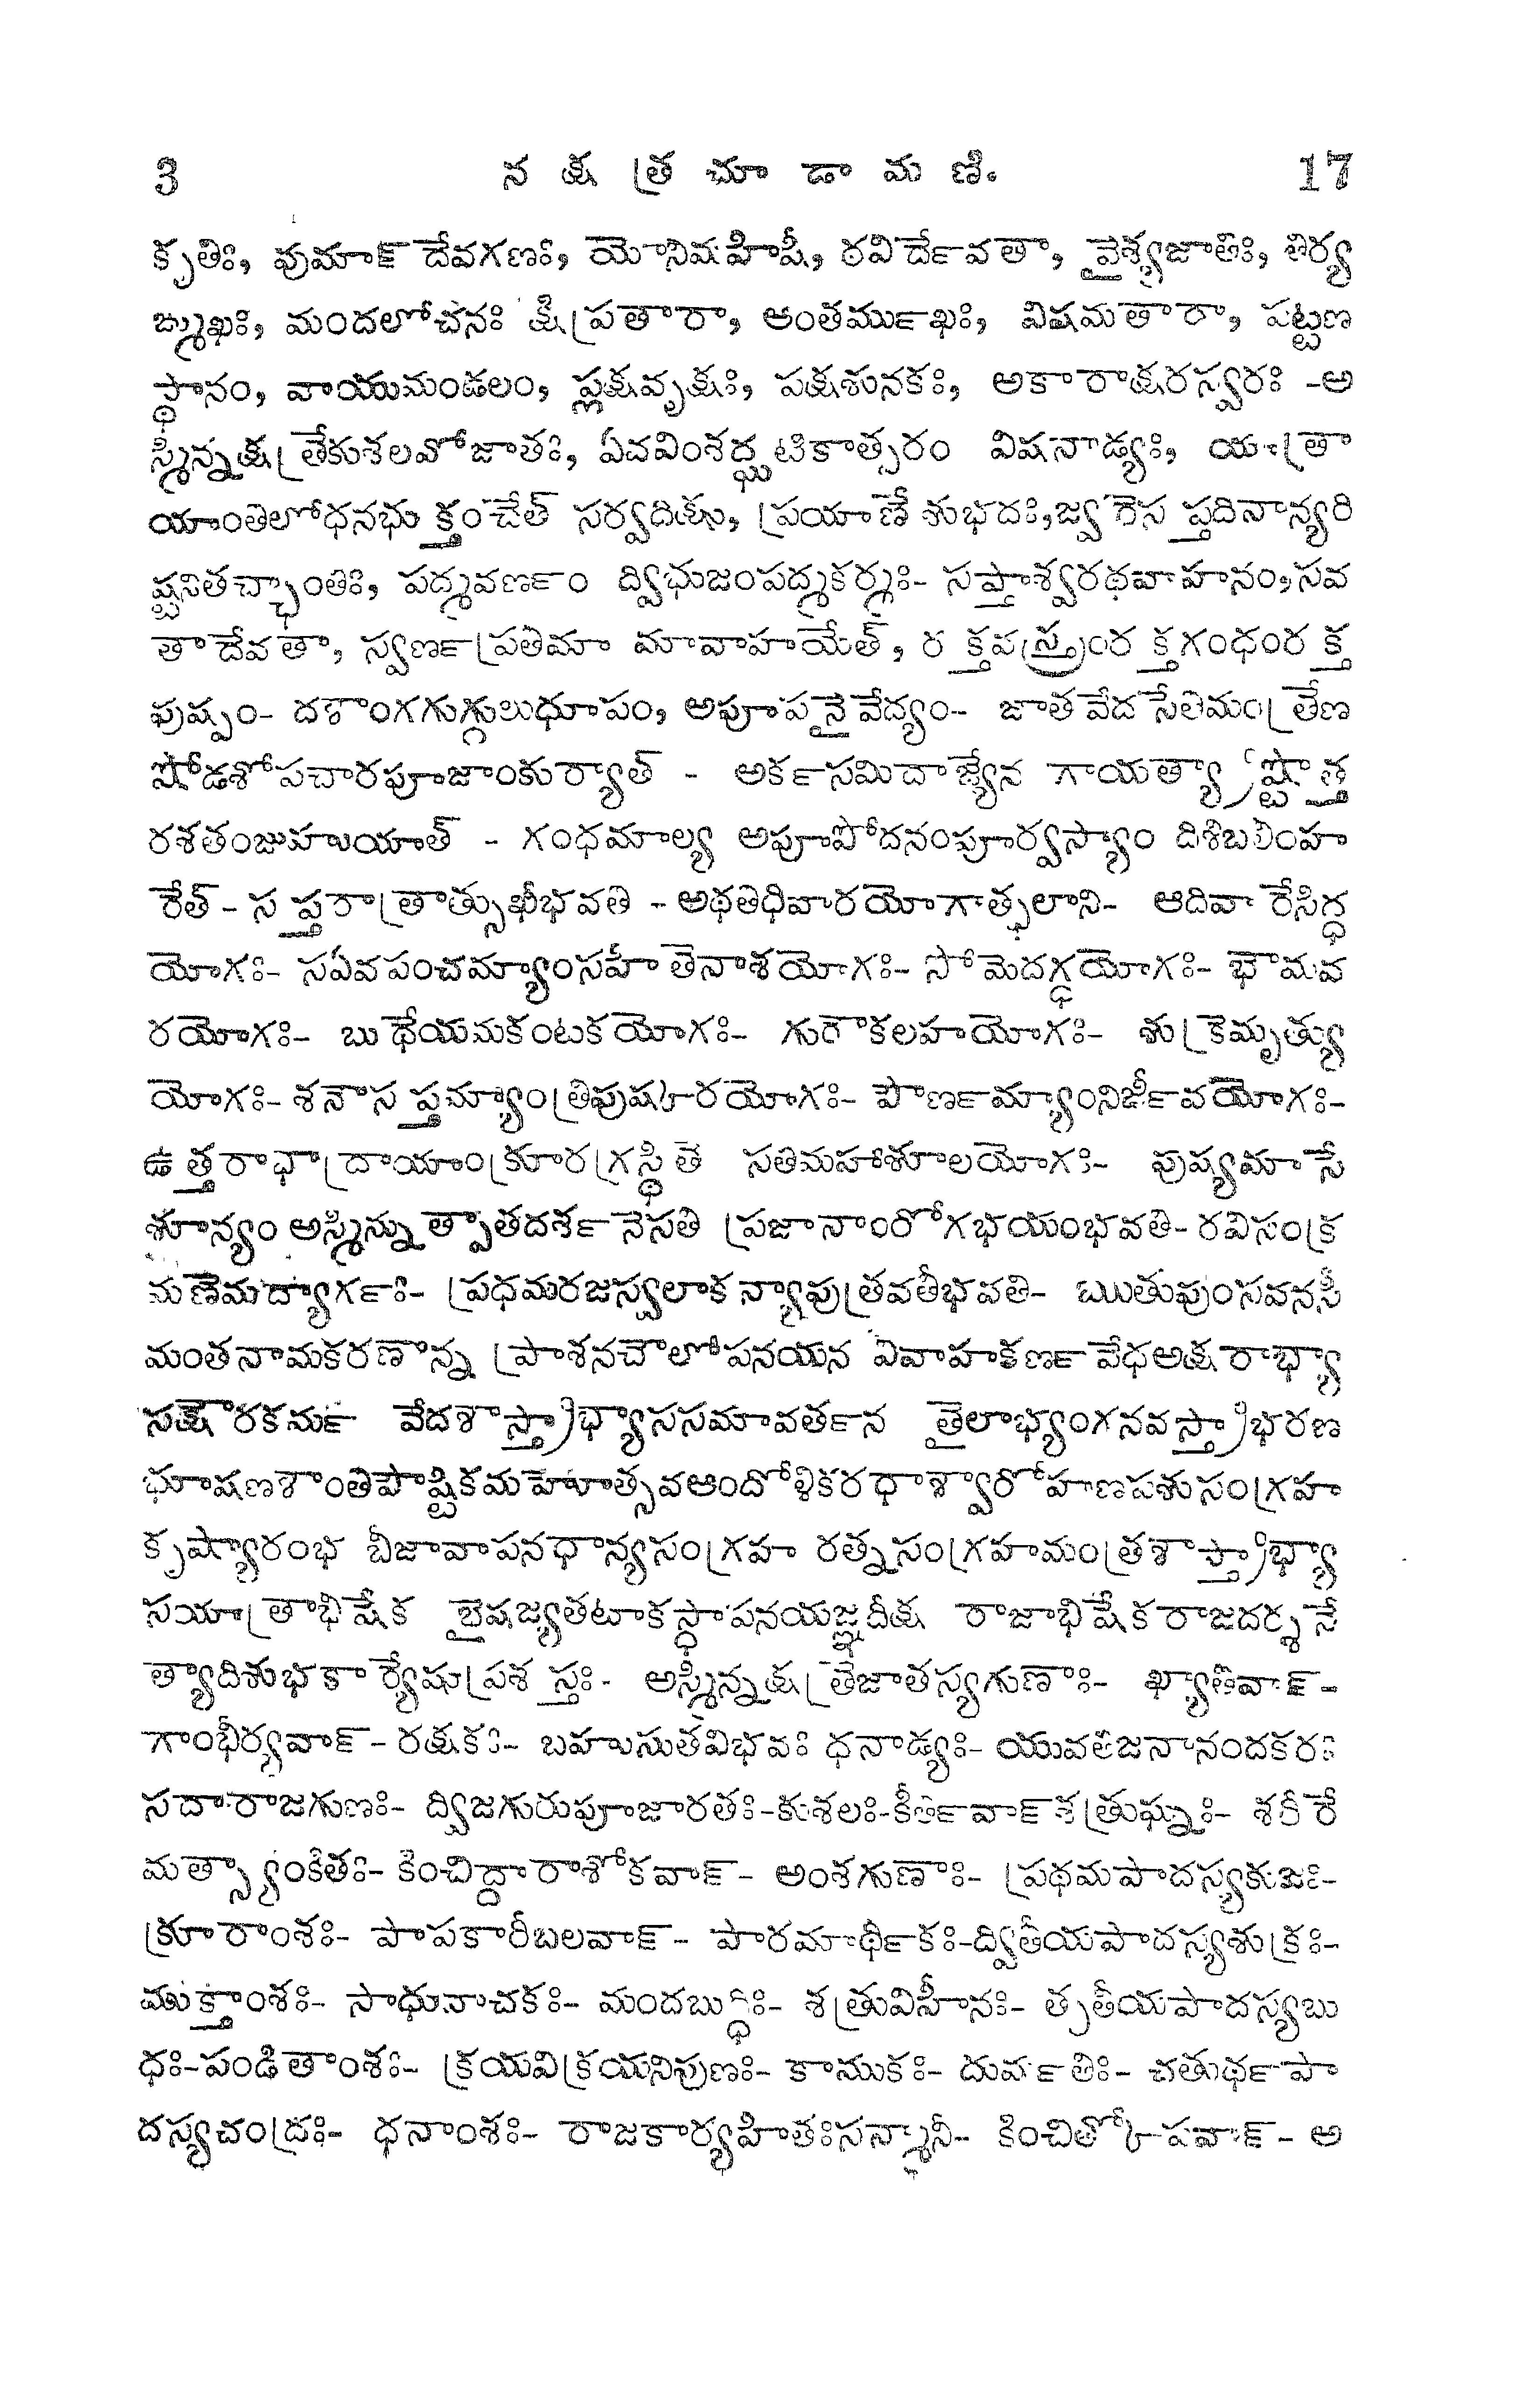 3 నక్షత్రచూడామణి. 17
కృతిః, పుమా౯ దేవగణః, యోనిమహిషీ, రవిర్దేవతా, వైశ్యజాతిః, తిర్య
ఙ్ముఖః, మందలోచనః క్షిప్రతారా, అంతర్ముఖః, విషమతారా, పట్టణ
స్థానం, వాయుమండలం, ప్లక్షవృక్షః, పక్షశునకః, అకారాక్షరస్వరః -అ
స్మిన్నక్షత్రేకుశలవోజాతః, ఏచవింశద్ఘటికాత్పరం విషనాడ్యః, యాత్రా
యాంతిలోధనభుక్తంచేత్ సర్వదిక్షు, ప్రయాణే శుభదః,జ్వరేసప్తదినాన్యరి
ష్టనితచ్ఛాంతిః, పద్మవర్ణం ద్విభుజంపద్మకర్మః- సప్తాశ్వరథవాహనం,సవ
తాదేవతా, స్వర్ణప్రతిమా మావాహయేత్, రక్తవస్త్రంరక్తగంధంరక్త
పుష్పం- దశాంగగుగ్గులుధూపం, అపూపనైవేద్యం- జాతవేదసేతిమంత్రేణ
షోడశోపచారపూజాంకుర్యాత్ - అర్కసమిదాజ్యేన గాయత్ర్యాష్టోత్త
రశతంజుహుయాత్ - గంధమాల్య అపూపోదనంపూర్వస్యాం దిశిబలింహ
రేత్- సప్తరాత్రాత్సుఖీభవతి - అథతిధివారయోగాత్ఫలాని- ఆదివారేసిద్ధ
యోగః- సఏవపంచమ్యాంసహితెనాశయోగః- సోమెదగ్ధయోగః- భౌమవ
రయోగః- బుధేయమకంటకయోగః- గురౌకలహయోగః- శుక్రెమృత్యు
యోగః- శనౌసప్తమ్యాంత్రిపుష్కరయోగః- పౌర్ణమ్యాంనిర్జీవయోగః-
ఉత్తరాభాద్రాయాంక్రూరగ్రస్థితే సతిమహాశూలయోగః- పుష్యమాసే
శూన్యం అస్మిన్నుత్పాతదర్శనెసతి ప్రజానాంరోగభయంభవతి- రవిసంక్ర
మణెమద్యార్గః- ప్రధమరజస్వలాకన్యాపుత్రవతీభవతి- ఋతుపుంసవనసీ
మంతనామకరణాన్నప్రాశనచౌలోపనయన వివాహకర్ణవేధఅక్షరాభ్యా
సక్షౌరకర్మ వేదశాస్త్రాభ్యాససమావర్తన తైలాభ్యంగనవస్త్రాభరణ
భూషణశాంతిపౌష్టికమహోత్సవఆందోళికరధాశ్వారోహణపశుసంగ్రహ
కృష్యారంభ బీజావాపనధాన్యసంగ్రహ రత్నసంగ్రహమంత్రశాస్త్రాభ్యా
సయాత్రాభిషేక భైషజ్యతటాకస్థాపనయజ్ఞదీక్ష రాజాభిషేకరాజదర్శనే
త్యాదిశుభకార్యేషుప్రశస్తః- అస్మిన్నక్షత్రేజాతస్యగుణాః- ఖ్యాతివా౯-
గాంభీర్యవా౯- రక్షకః- బహుసుతవిభవః ధనాడ్యః- యువతిజనానందకరః
సదారాజగుణః- ద్విజగురుపూజారతః-కుశలః-కీర్తివా౯శత్రుఘ్నః- శరీరే
మత్స్యాంకితః- కించిద్దారాశోకవా౯- అంశగుణాః- ప్రథమపాదస్యకుజః-
క్రూరాంశః- పాపకారీబలవా౯- పారమార్థికః-ద్వితీయపాదస్యశుక్రః-
ముక్తాంశః- సాధునాచకః- మందబుద్ధిః- శత్రువిహీనః- తృతీయపాదస్యబు
ధః-పండితాంశః- క్రయవిక్రయనిపుణః- కాముకః- దుర్మతిః- చతుర్థపా
దస్యచంద్రః- ధనాంశః- రాజకార్యహితఃసన్మానీ- కించిత్కోపవా౯- అ